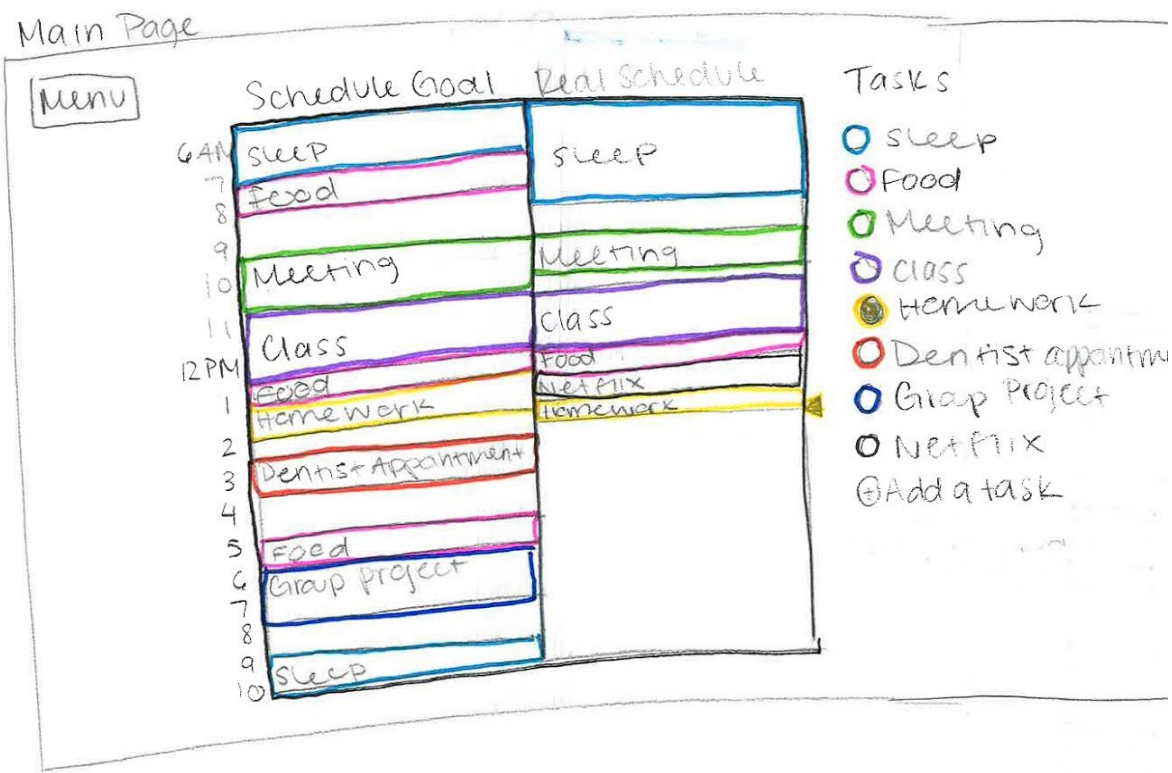 Main Page
Menu
Schedule Goal
Real Schedule
Tasks
6 AM
7
8
9
10
11
12 PM
1
2
3
4
5
6
7
8
9
10
Sleep
Food
Meeting
Class
Food
Homework
Dentist Appantment
Food
Group project
Sleep
Sleep
Meeting
Class
Food
Netflix
Homework
Sleep
Food
Meeting
Class
Homework
Dentist appantme
Group Project
Netflix
+ Add a task